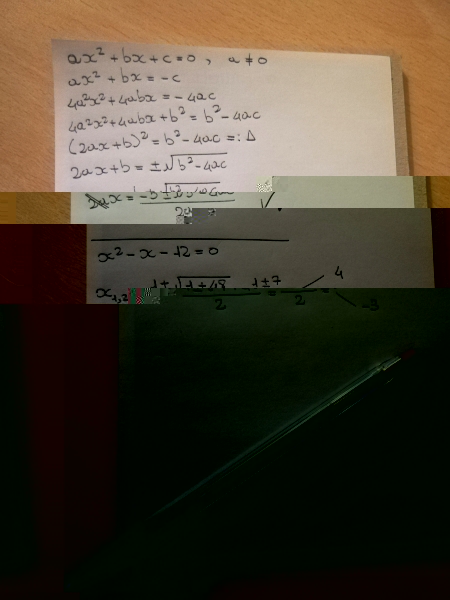 ax² + bx + c = 0 , a ≠ 0
ax² + bx = -c
4a²x² + 4abx = -4ac
4a²x² + 4abx + b² = b² - 4ac
(2ax + b)² = b² - 4ac =: Δ
2ax + b = ±√(b² - 4ac)
x² - x - 12 = 0
x₁,₂ 1 ± √(1 + 48) / 2 = 1 ± 7 / 2 = 4 -3